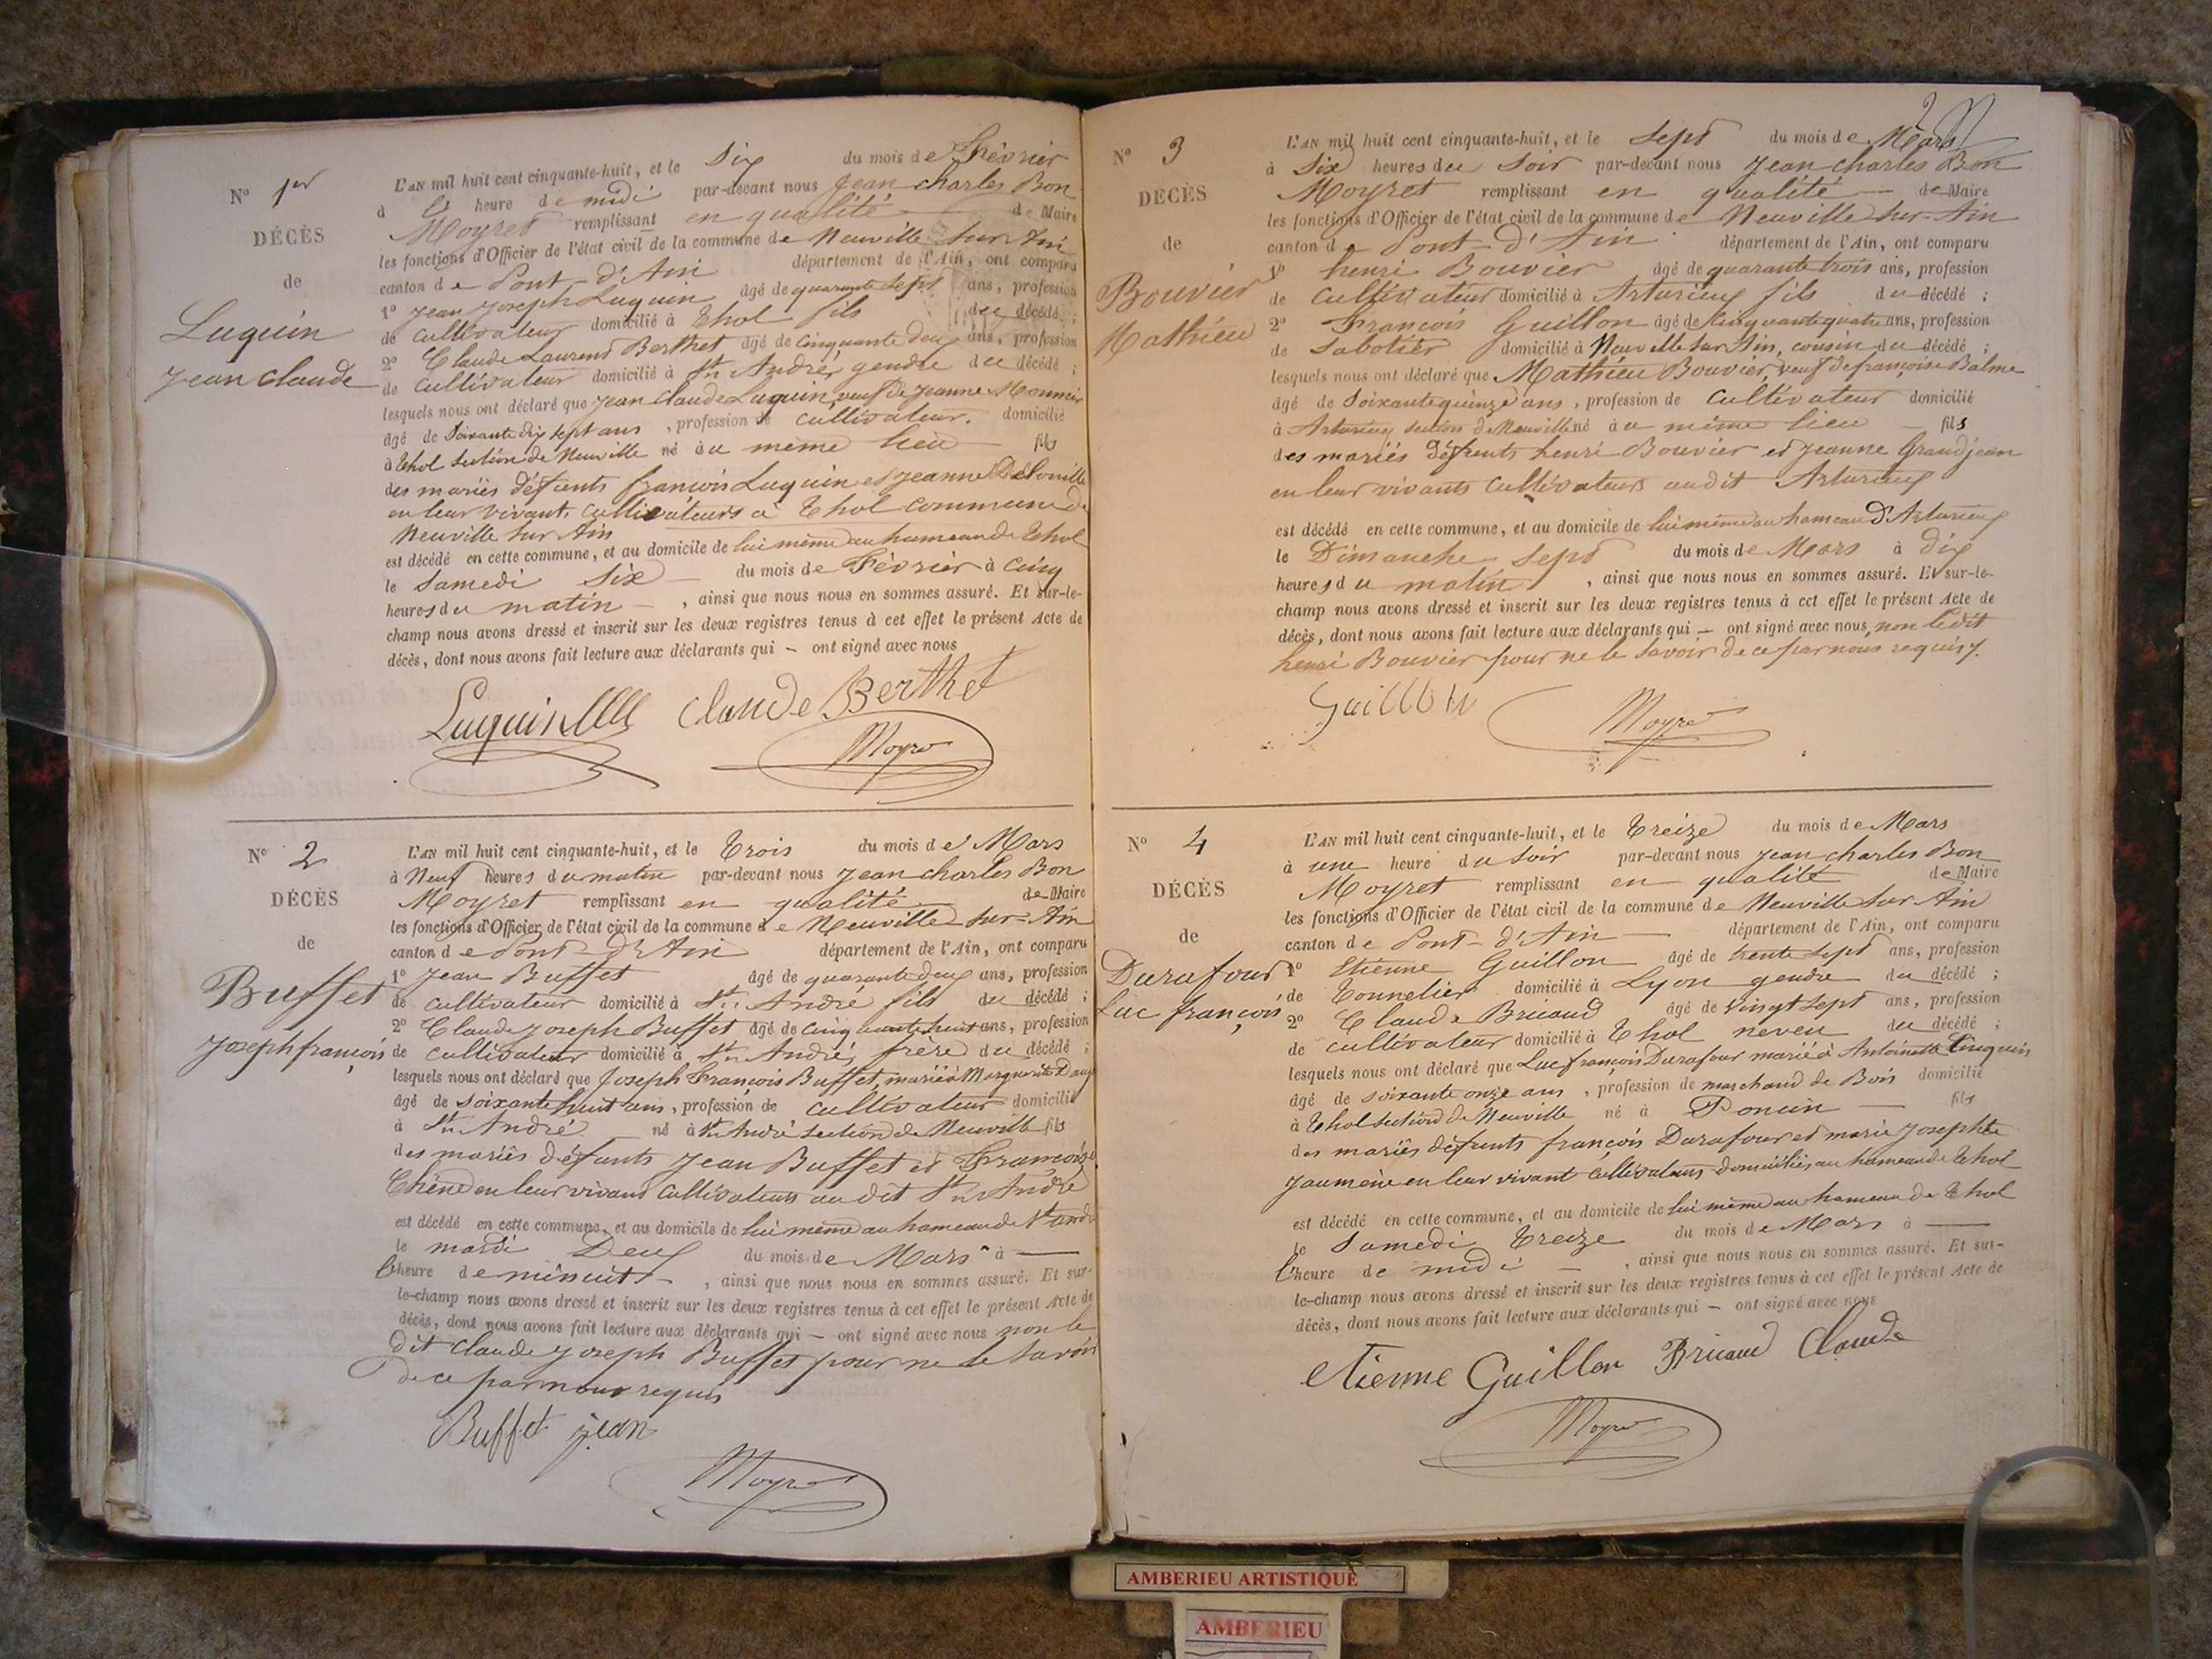 N° 1er
DÉCÈS
de
Luquin
Jean Claude
L'AN mil huit cent cinquante-huit, et le Six du mois de Février
à l' heure de midi par-devant nous Jean Charles Bon
Moyret remplissant en qualité de Maire
les fonctions d'Officier de l'état civil de la commune de Neuville sur Ain
canton de Pont-d'Ain département de l'Ain, ont comparu
1° Jean Joseph Luquin âgé de quarante sept ans, profession
de cultivateur domicilié à Thol fils du décédé ;
2° Claude Laurent Berthet âgé de cinquante deux ans, profession
de cultivateur domicilié à St André, gendre du décédé ;
lesquels nous ont déclaré que Jean Claude Luquin, veuf de Jeanne Monnier
âgé de Soixante dix sept ans, profession de cultivateur. domicilié
à Thol section de Neuville né au même lieu fils
des mariés défunts françois Luquin et Jeanne
en leur vivant cultivateurs à Thol commune de
Neuville sur Ain
est décédé en cette commune, et au domicile de lui même au hameau de Thol
le Samedi Six du mois de Février à Cinq
heures du matin, ainsi que nous nous en sommes assuré. Et sur-le-
champ nous avons dressé et inscrit sur les deux registres tenus à cet effet le présent Acte de
décès, dont nous avons fait lecture aux déclarants qui – ont signé avec nous
Luquin Claude Berthet
Moyret
N° 2
DÉCÈS
de
Buffet
Joseph françois
L'AN mil huit cent cinquante-huit, et le Trois du mois de Mars
à Neuf heures du matin par-devant nous Jean Charles Bon
Moyret remplissant en qualité de Maire
les fonctions d'Officier de l'état civil de la commune de Neuville sur-Ain
canton de Pont-D'Ain département de l'Ain, ont comparu
1° Jean Buffet âgé de quarante deux ans, profession
de cultivateur domicilié à St André fils du décédé ;
2° Claude Joseph Buffet âgé de cinquante huit ans, profession
de cultivateur domicilié à St André, frère du décédé ;
lesquels nous ont déclaré que Joseph François Buffet, marié à Marguerite
âgé de soixante huit ans, profession de cultivateur domicilié
à St André né à St André section de Neuville fils
des mariés défunts Jean Buffet et Françoise
Chêne en leur vivant cultivateurs au dit St André
est décédé en cette commune, et au domicile de lui même au hameau de St andré
le mardi Deux du mois de Mars à —
l'heure de minuit, ainsi que nous nous en sommes assuré. Et sur-
le-champ nous avons dressé et inscrit sur les deux registres tenus à cet effet le présent Acte de
décès, dont nous avons fait lecture aux déclarants qui – ont signé avec nous non le
dit Claude Joseph Buffet pour ne le savoir
De ce par nous requis
Buffet jean
Moyret
2
N° 3
DÉCÈS
de
Bouvier
Mathieu
L'AN mil huit cent cinquante-huit, et le Sept du mois de Mars
à Six heures du Soir par-devant nous Jean Charles Bon
Moyret remplissant en qualité — de Maire
les fonctions d'Officier de l'état civil de la commune de Neuville sur-Ain
canton de Pont-d'Ain département de l'Ain, ont comparu
1° henri Bouvier âgé de quarante trois ans, profession
de Cultivateur domicilié à Arturieux fils du décédé ;
2° François Guillon âgé de Cinquante quatre ans, profession
de Sabotier domicilié à Neuville sur Ain, cousin du décédé ;
lesquels nous ont déclaré que Mathieu Bouvier, veuf de françoise Balme
âgé de Soixante quinze ans, profession de Cultivateur domicilié
à Arturieux section de Neuville né au même lieu — fils
des mariés défunts henri Bouvier et Jeanne Grandjean
en leur vivants Cultivateurs audit Arturieux
est décédé en cette commune, et au domicile de lui même au hameau D'Arturieux
le Dimanche Sept du mois de Mars à dix
heures du matin, ainsi que nous nous en sommes assuré. Et sur-le-
champ nous avons dressé et inscrit sur les deux registres tenus à cet effet le présent Acte de
décès, dont nous avons fait lecture aux déclarants qui – ont signé avec nous, non le dit
henri Bouvier pour ne le savoir de ce par nous requis.
Guillon
Moyret
N° 4
DÉCÈS
de
Durafour
Luc françois
L'AN mil huit cent cinquante-huit, et le Treize du mois de Mars
à une heure du Soir par-devant nous Jean Charles Bon
Moyret remplissant en qualité de Maire
les fonctions d'Officier de l'état civil de la commune de Neuville sur Ain
canton de Pont-d'Ain — département de l'Ain, ont comparu
1° Etienne Guillon âgé de trente sept ans, profession
de Tonnelier domicilié à Lyon gendre du décédé ;
2° Claude Bricaud âgé de vingt sept ans, profession
de cultivateur domicilié à Thol neveu du décédé ;
lesquels nous ont déclaré que Luc françois Durafour marié à Antoinette Luiquin
âgé de soixante onze ans, profession de marchand de Bois domicilié
à Thol section de Neuville né à Poncin — fils
des mariés défunts françois Durafour et marie Josephte
Jaumène en leur vivant cultivateurs domiciliés au hameau de Thol
est décédé en cette commune, et au domicile de lui même au hameau de Thol
le Samedi Treize du mois de Mars à —
l'heure de midi —, ainsi que nous nous en sommes assuré. Et sur-
le-champ nous avons dressé et inscrit sur les deux registres tenus à cet effet le présent Acte de
décès, dont nous avons fait lecture aux déclarants qui – ont signé avec nous
etienne Guillon Bricaud Claude
Moyret
AMBERIEU ARTISTIQUE
AMBERIEU